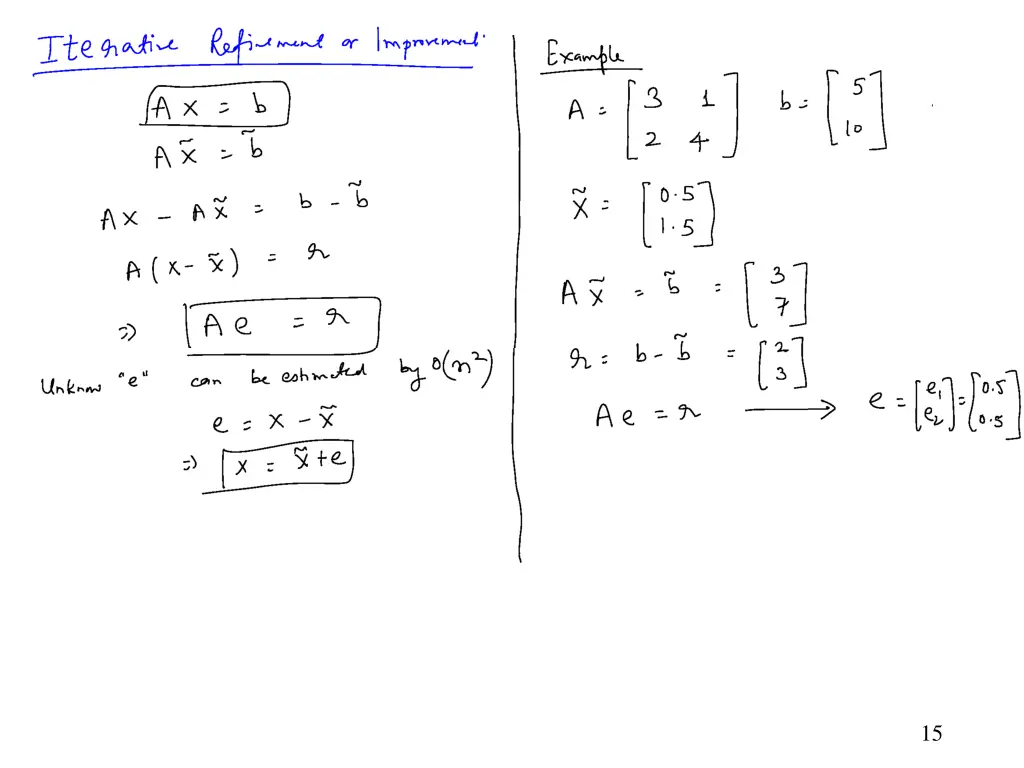 Iterative Refinement or Improvement.
Ax = b
Ax̃ = b̃
Ax - Ax̃ = b - b̃
A(x - x̃) = r
⇒ Ae = r
Unknow "e" can be estimated by O(n²)
e = x - x̃
⇒ x = x̃ + e
Example
A = [3 1
2 4] b = [5
10]
x̃ = [0.5
1.5]
Ax̃ = b̃ = [3
7]
r = b - b̃ = [2
3]
Ae = r ⟶ e = [e₁
e₂] = [0.5
0.5]
15